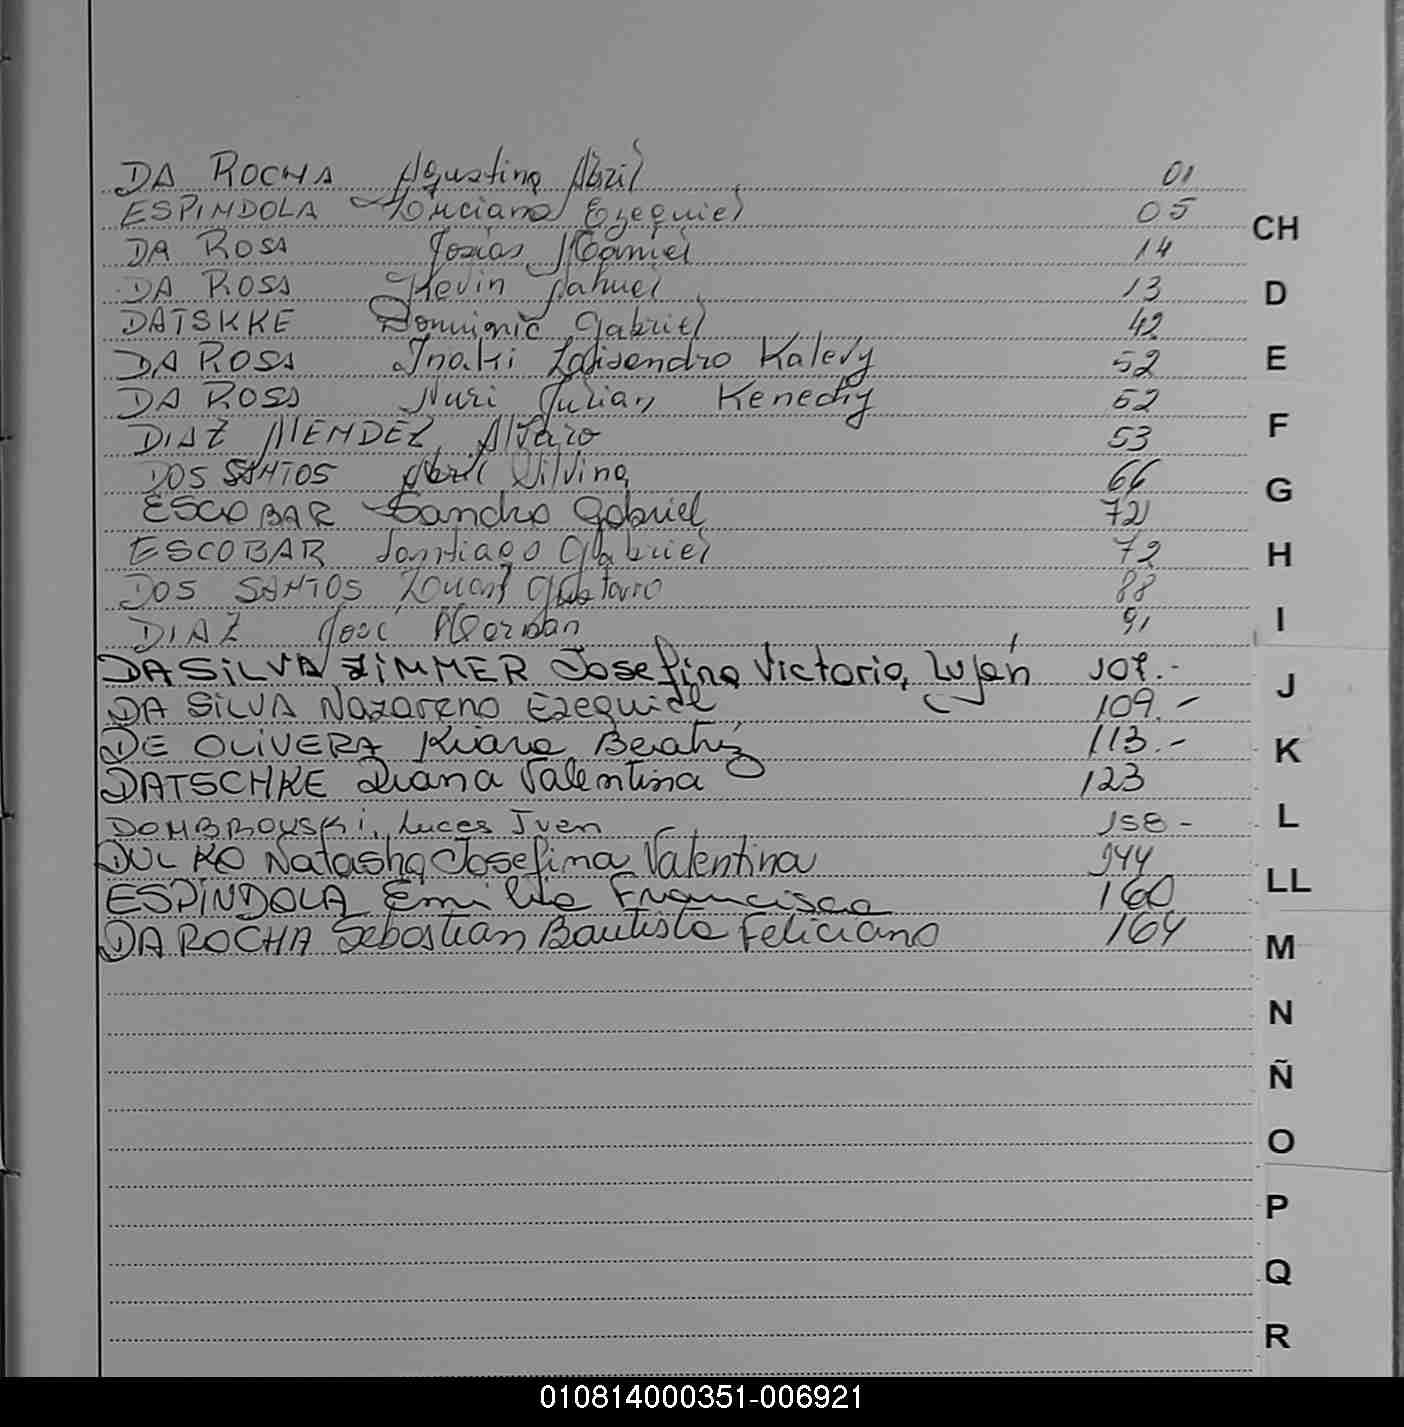 DA ROCHA Agustina Abril 01
ESPINDOLA Luciano Ezequiel 05
DA ROSA Josias Daniel 14
DA ROSA Kevin Nahuel 13
DATSKKE Dominic Gabriel 42
DA ROSA Inaki Lisendro Kalevy 52
DA ROSA Nuri Julian Kenechy 52
DIAZ MENDEZ Alvaro 53
DOS SANTOS Abril Silvina 66
ESCOBAR Sandro Gabriel 72
ESCOBAR Santiago Gabriel 72
DOS SANTOS Lucas 88
DIAZ José 91
DA SILVA ZIMMER Josefina Victoria, Luján 107.-
DA SILVA Nazareno Ezequiel 109.-
DE OLIVERA Kiara Beatriz 113.-
DATSCHKE Diana Valentina 123
DOMBROWSKI, Lucas Iven 158-
DULKO Natasha Josefina Valentina 144
ESPÍNDOLA Emilia Francisca 160
DA ROCHA Sebastian Bautista Feliciano 164
CH
D
E
F
G
H
I
J
K
L
LL
M
N
Ñ
O
P
Q
R
010814000351-006921